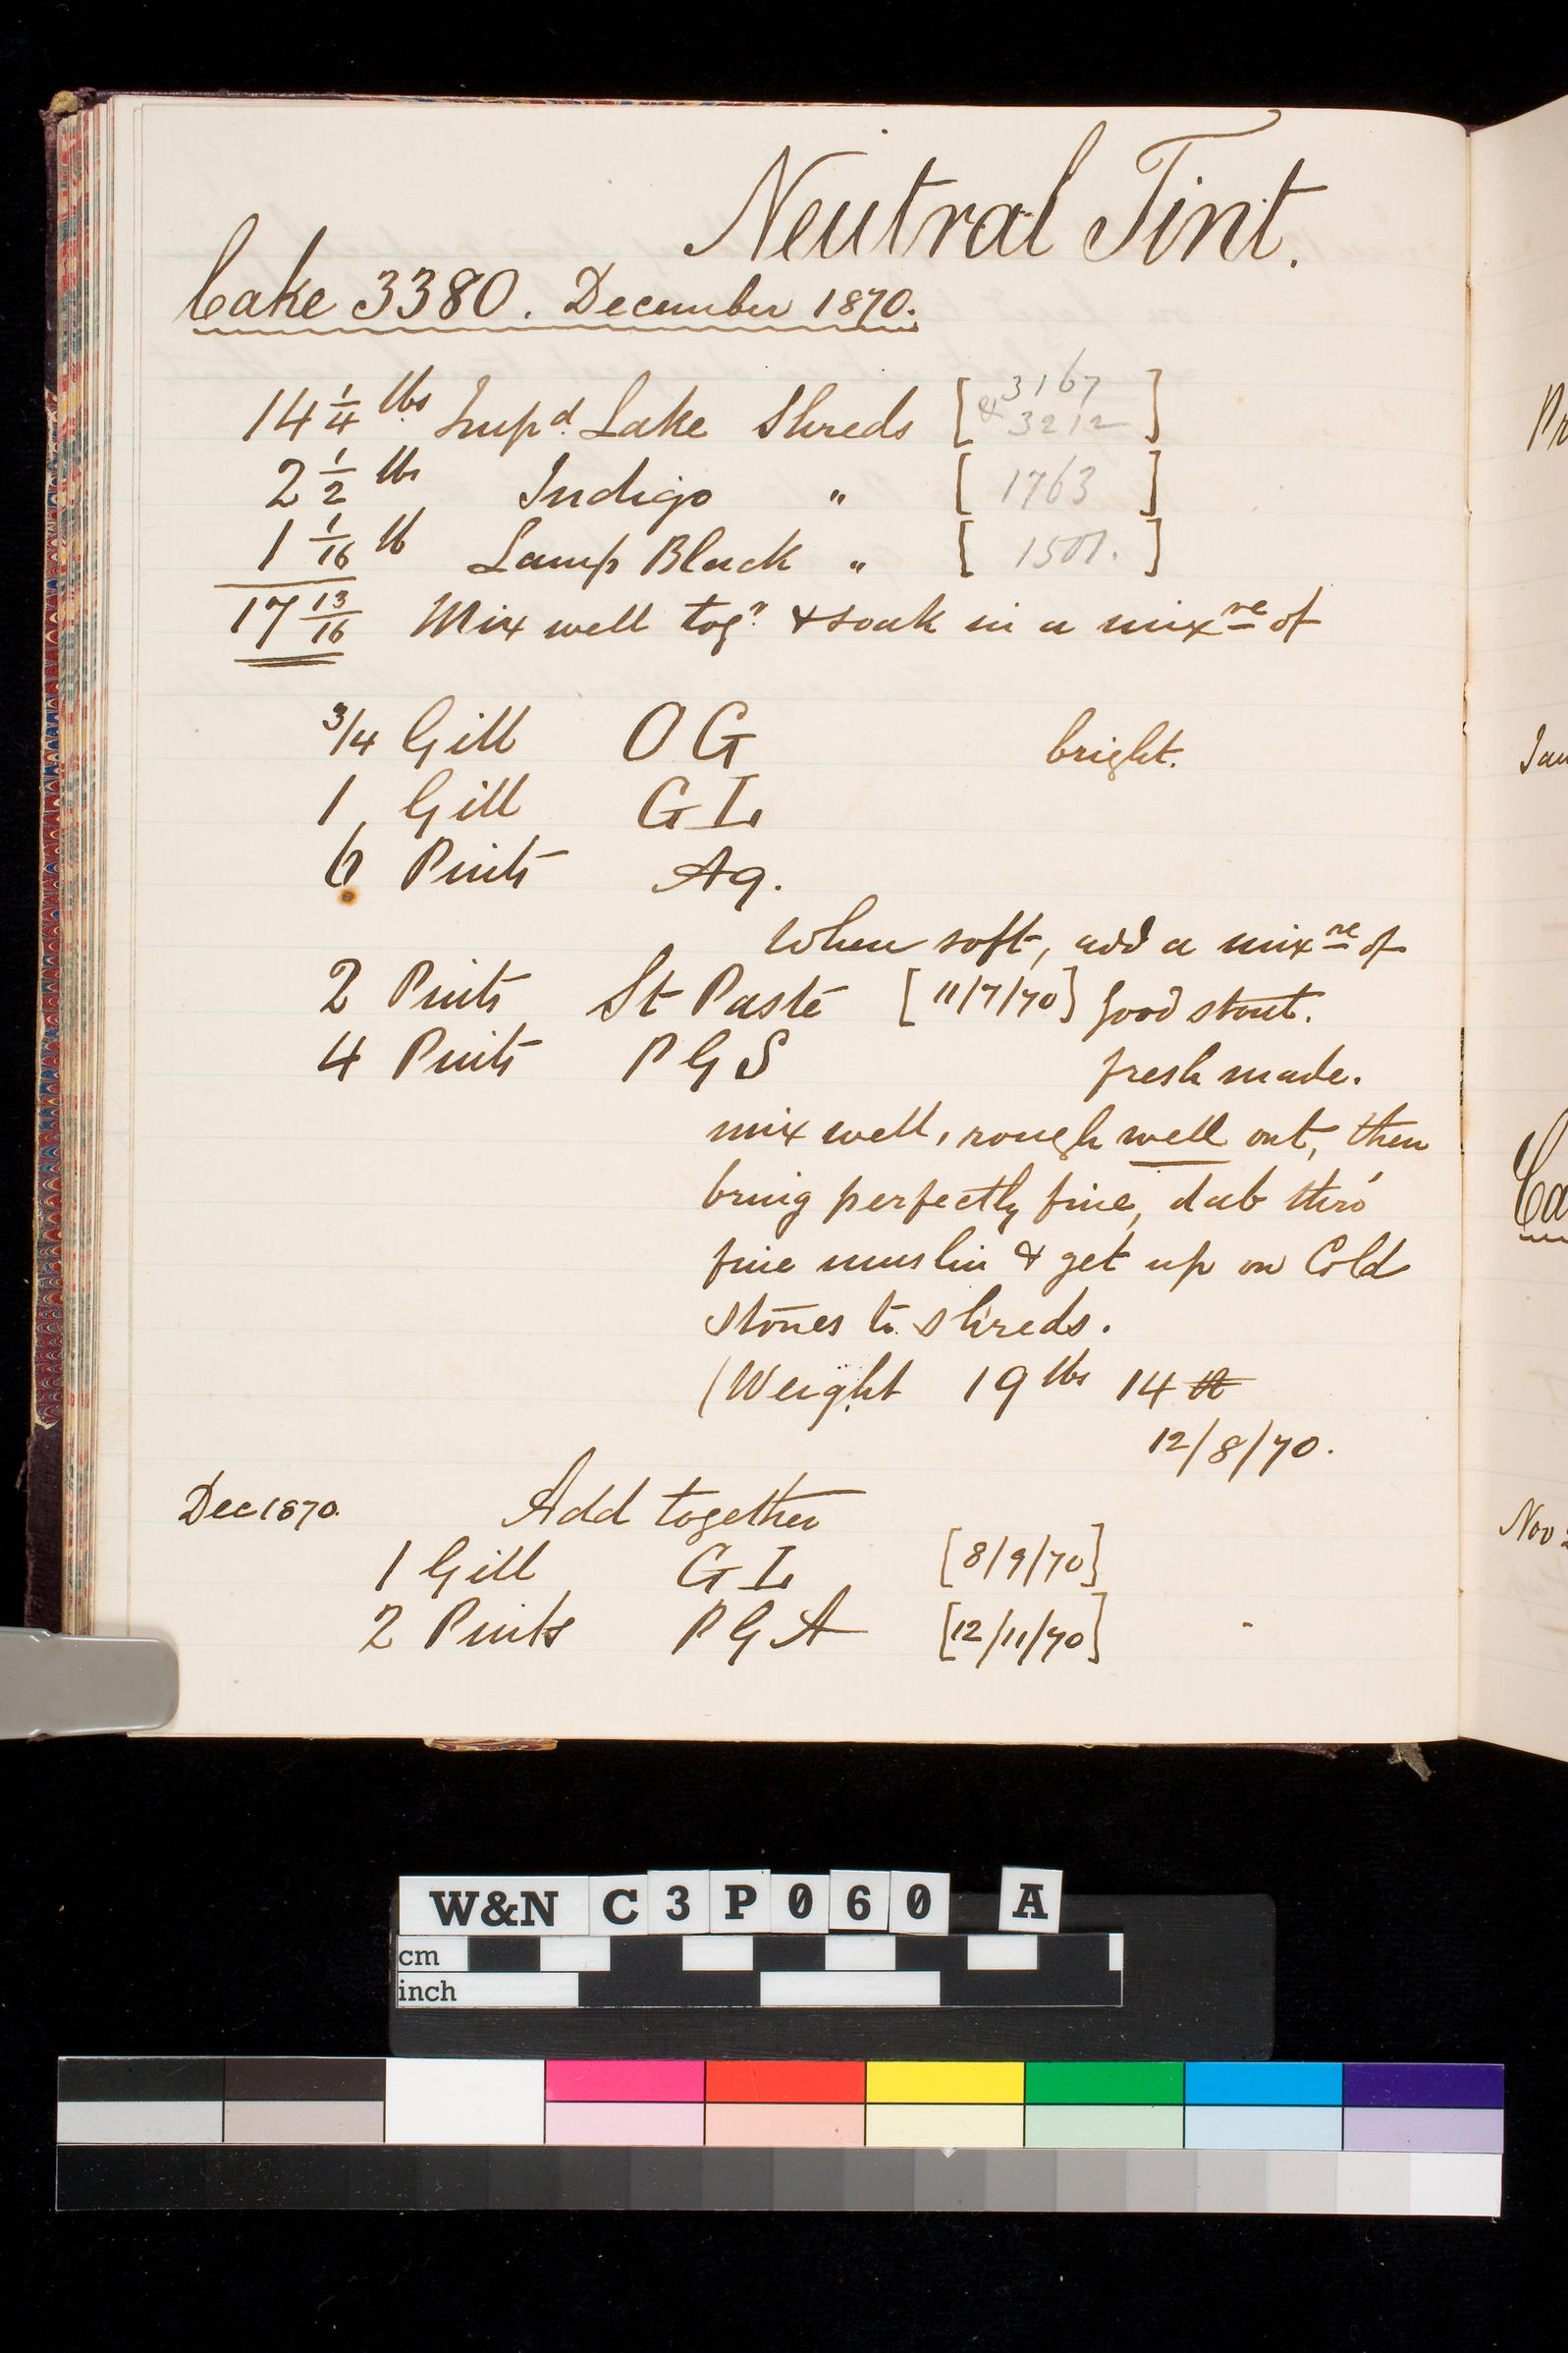 Neutral Tint.
Cake 3380. December 1870.
14 1/4 lbs Impd. Lake Shreds [3167 & 3212]
2 1/2 lbs Indigo " [1763]
1 1/16 lb Lamp Black " [1501.]
17 13/16 Mix well togr. & soak in a mixre of
3/4 Gill OG bright.
1 Gill GL
6 Pints Aq.
When soft, add a mixre of
2 Pints St Paste [11/7/70] good stout.
4 Pints PGS fresh made.
mix well, rough well out, then
bring perfectly fine, dab thro'
fine muslin & get up on Cold
stones to shreds.
(Weight 19 lbs 14
12/8/70.
Dec 1870. Add together
1 Gill GL [8/9/70]
2 Pints PGA [12/11/70]
Pr
Jan
Ca
Nov 2
W&N C3P060 A
cm
inch